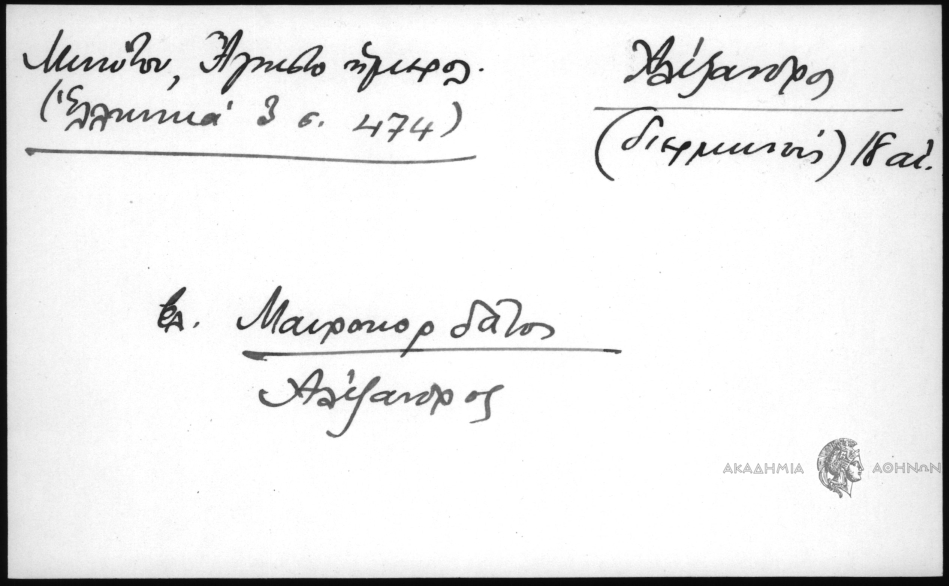 Μινώτου, Ἄγρηστο ἥμερος.
(Ἑλληνικά 3 σ. 474)
Ἀλέξανδρος
(διερμηνεύς) 18 αἰ.
βλ. Μαυροκορδᾶτος
Ἀλέξανδρος
ΑΚΑΔΗΜΙΑ ΑΘΗΝΩΝ